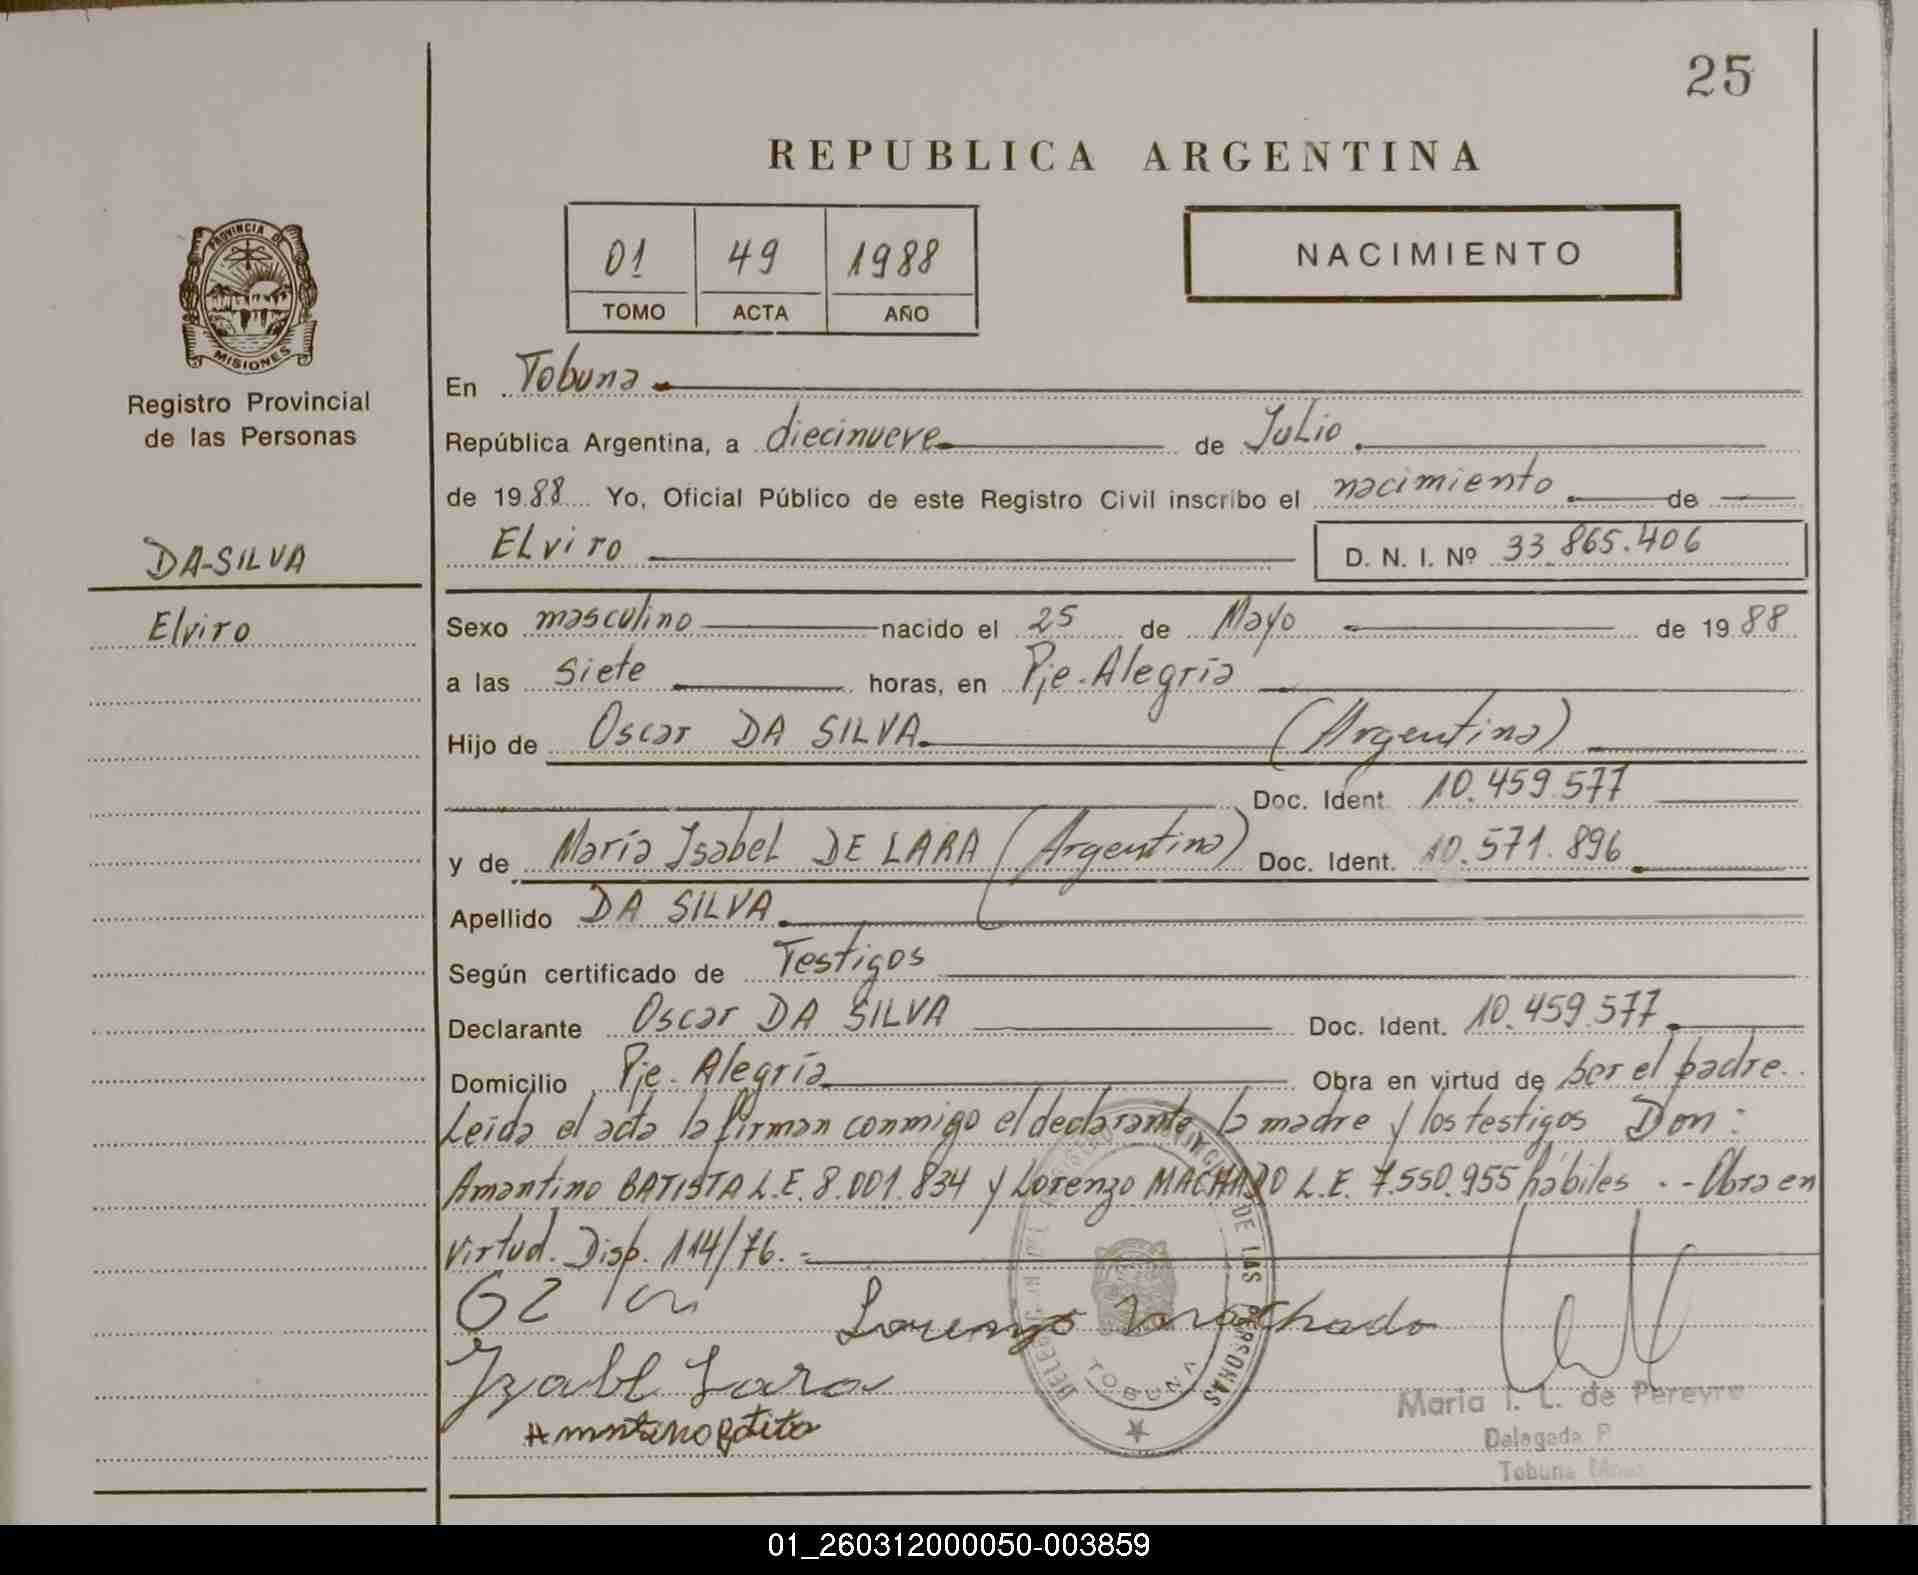 25
REPUBLICA ARGENTINA
01 49 1988
TOMO ACTA AÑO
NACIMIENTO
PROVINCIA DE
MISIONES
Registro Provincial
de las Personas
DA-SILVA
Elviro
En Tobuna
República Argentina, a diecinueve de Julio
de 1988 Yo, Oficial Público de este Registro Civil inscribo el nacimiento de
Elviro D. N. I. Nº 33.865.406
Sexo masculino nacido el 25 de Mayo de 1988
a las siete horas, en Pje. Alegría
Hijo de Oscar DA SILVA (Argentina)
Doc. Ident. 10.459.577
y de María Isabel DE LARA (Argentina) Doc. Ident. 10.571.896
Apellido DA SILVA
Según certificado de Testigos
Declarante Oscar DA SILVA Doc. Ident. 10.459.577
Domicilio Pje. Alegría Obra en virtud de ser el padre.
Leída el acta la firman conmigo el declarante la madre y los testigos Don:
Amantino BATISTA L.E. 8.001.834 y Lorenzo MACHADO L.E. 7.550.955 hábiles .- Obra en
virtud. Disp. 114/76.-
Lorenzo Machado
Yzabl Lara
DE LAS PERSONAS
TOBUNA
Maria I. L. de Pereyra
Delegada
Tobuna
01_260312000050-003859